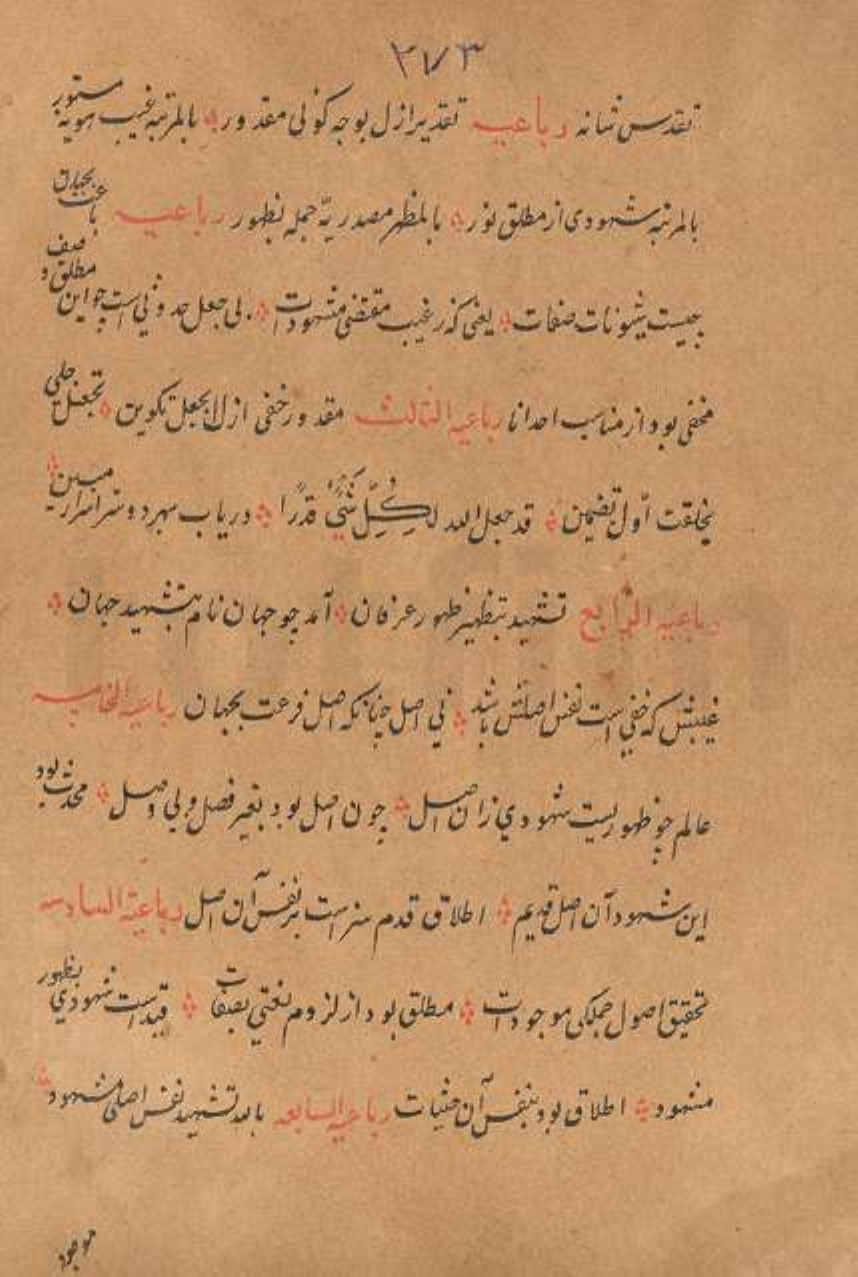 ۲۷۳
تقدس شانه رباعیه تقدیر ازل بوجه کونی مقدور بالمرتبه غیب هویه مستور
بالمرتبه شهودی از مطلق نور بالمظهر مصدریة جمله بظهور رباعیه
چیست شیونات صفات یعنی که ز غیب مقتضی مشهودات بی جعل حدوثی است چو این مطلق و
مخفی بود از مناسب احدانا رباعیه الثالث مقدور خفی ازل لا بجعل تکوین تجعل جلی
بخلقت اول تضمین قد جعل الله لكل شئ قدرا دریاب سهر دو سر اسرار مبین
رباعیه الرابع تشهید بتظهیر ظهور عرفان آمد چو جهان نام بتشهید جهان
غیبتش که خفی است نفس اصلش باشد نی اصل چنانکه اصل فرعت بجهان رباعیة الخامسه
عالم چو ظهوریست شهودی زان اصل چون اصل بود بغیر فصل و بی وصل محدث بود
این شهود آن اصل قدیم اطلاق قدم سزاست بر نفس آن اصل رباعیة السادسه
تحقیق اصول جملگی موجودات مطلق بود از لزوم نعتی بصفات قید است شهودی بظهور
مشهود اطلاق بود بنفس آن حیثیات رباعیه السابعه بالد تشهید نفس اصلی مشهود
موجود